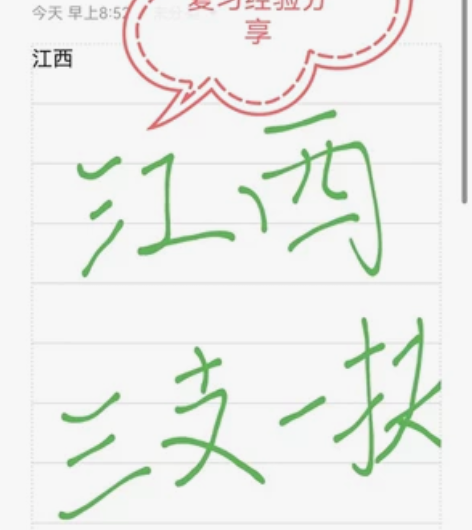 今天 早上8:52
复习经验分
享
江西
江西
三支一扶